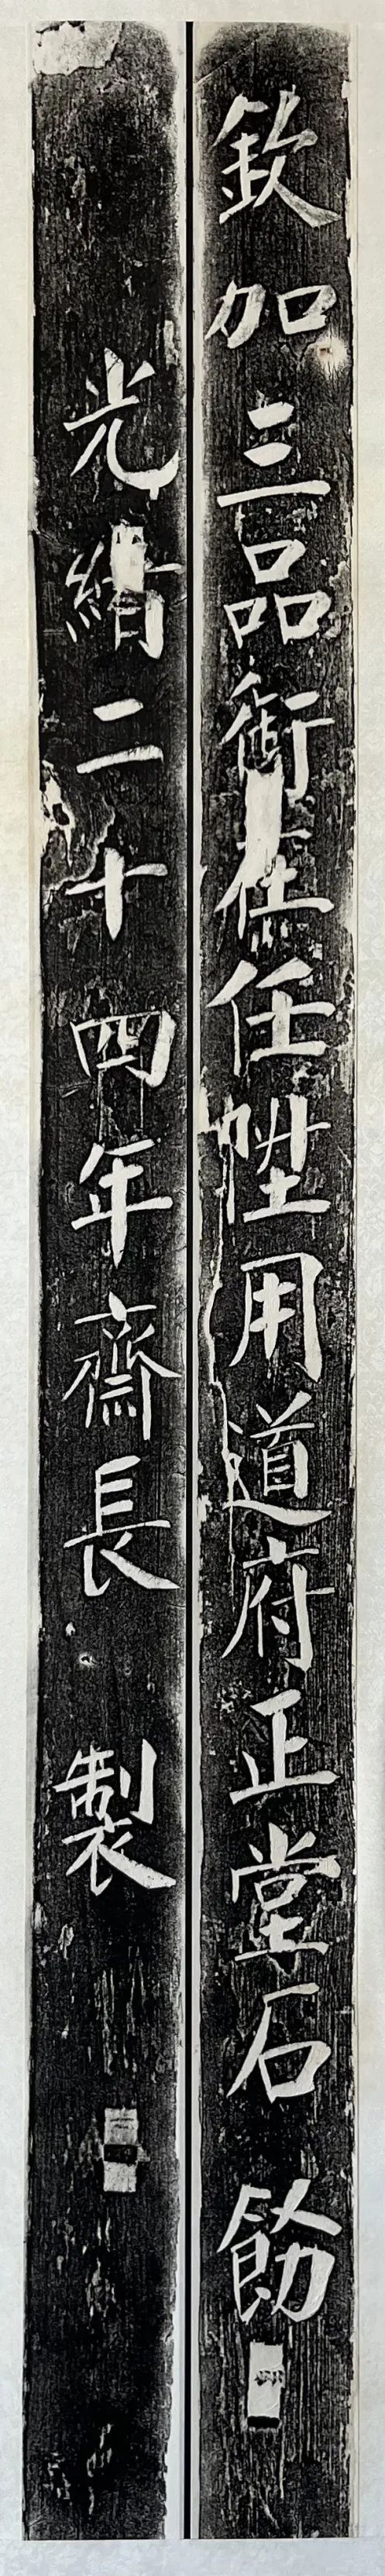 欽加三品銜在任陞用道府正堂石飭
光緒二十四年齋長製